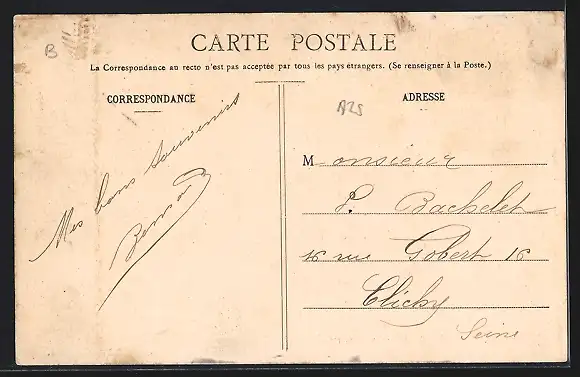 B 11
CARTE POSTALE
La Correspondance au recto n'est pas acceptée par tous les pays étrangers. (Se renseigner à la Poste.)
CORRESPONDANCE
Mes bons souvenirs
ADRESSE
A25
Monsieur
P. Bachelet
16 rue Gobert 16
Clichy
Seine